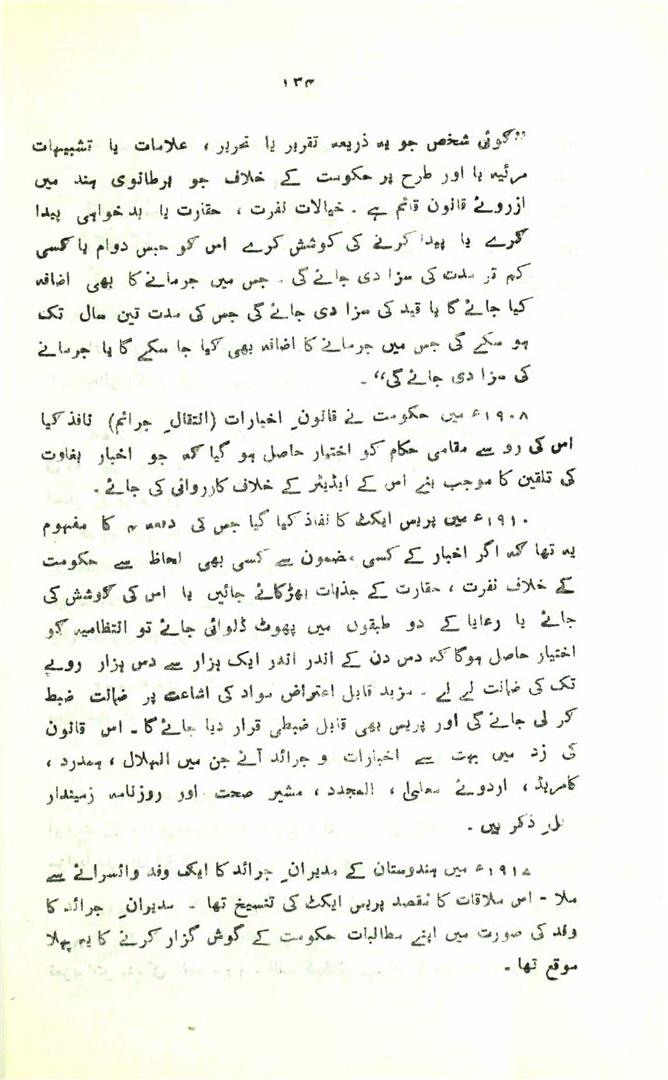 ۱۳۴
”کوئی شخص جو بہ ذریعہ تقریر یا تحریر ، علامات یا تشبیہات
مرئیہ یا اور طرح پر حکومت کے خلاف جو برطانوی ہند میں
ازروئے قانون قائم ہے ۔ خیالات نفرت ، حقارت یا بد خواہی پیدا
کرے یا پیدا کرنے کی کوشش کرے اس کو حبس دوام یا کسی
کم تر مدت کی سزا دی جائے گی ۔ جس میں جرمانے کا بھی اضافہ
کیا جائے گا یا قید کی سزا دی جائے گی جس کی مدت تین سال تک
ہو سکے گی جس میں جرمانے کا اضافہ بھی کیا جا سکے گا یا جرمانے
کی سزا دی جائے گی“ ۔
۱۹۰۸ء میں حکومت نے قانونِ اخبارات (انتقالِ جرائم) نافذ کیا
اس کی رو سے مقامی حکام کو اختیار حاصل ہو گیا کہ جو اخبار بغاوت
کی تلقین کا موجب بنے اس کے ایڈیٹر کے خلاف کارروائی کی جائے ۔
۱۹۱۰ء میں پریس ایکٹ کا نفاذ کیا گیا جس کی دفعہ ۴ کا مفہوم
یہ تھا کہ اگر اخبار کے کسی مضمون سے کسی بھی لحاظ سے حکومت
کے خلاف نفرت ، حقارت کے جذبات بھڑکائے جائیں یا اس کی کوشش کی
جائے یا رعایا کے دو طبقوں میں پھوٹ ڈلوائی جائے تو انتظامیہ کو
اختیار حاصل ہوگا کہ دس دن کے اندر اندر ایک ہزار سے دس ہزار روپے
تک کی ضمانت لے لے ۔ مزید قابل اعتراض مواد کی اشاعت پر ضمانت ضبط
کر لی جائے گی اور پریس بھی قابل ضبطی قرار دیا جائے گا ۔ اس قانون
کی زد میں بہت سے اخبارات و جرائد آئے جن میں الہلال ، ہمدرد ،
کامریڈ ، اردوئے معلیٰ ، المجدد ، مشیر صحت اور روزنامہ زمیندار
ذکر ہیں ۔
میں ہندوستان کے مدیرانِ جرائد کا ایک وفد وائسرائے سے
ملا - اس ملاقات کا مقصد پریس ایکٹ کی تنسیخ تھا ۔ مدیرانِ جرائد کا
وفد کی صورت میں اپنے مطالبات حکومت کے گوش گزار کرنے کا یہ پہلا
موقع تھا ۔